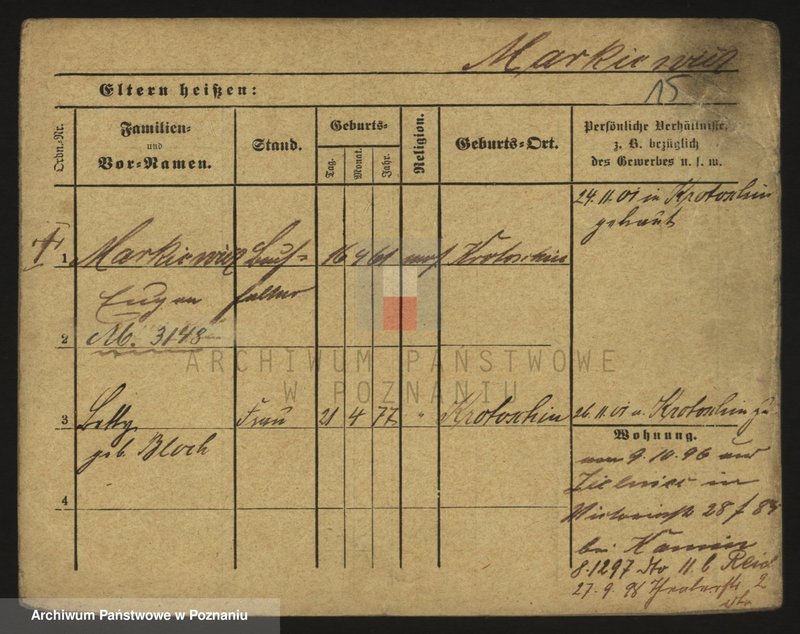 Markiewicz
15
Eltern heißen:
Ordn.-Nr.
Familien-
und
Vor-Namen.
Stand.
Geburts-
Tag.
Monat.
Jahr.
Religion.
Geburts-Ort.
Persönliche Verhältnisse,
z. B. bezüglich
des Gewerbes u. s. w.
24.11.01 in Krotoschin
getraut
1 Markiewicz Buch- 16 9 61 mos. Krotoschin
Eugen halter
2 M. 3148
ARCHIWUM PAŃSTWOWE
W POZNANIU
3 Betty Frau 21 4 77 " Krotoschin
geb. Bloch
26.11.01 v. Krotoschin zu
Wohnung.
4
9.10.96
in
28 f 84
bei Kamin
8.12 97 dto 11.b
27.9.98 2
dto
Archiwum Państwowe w Poznaniu